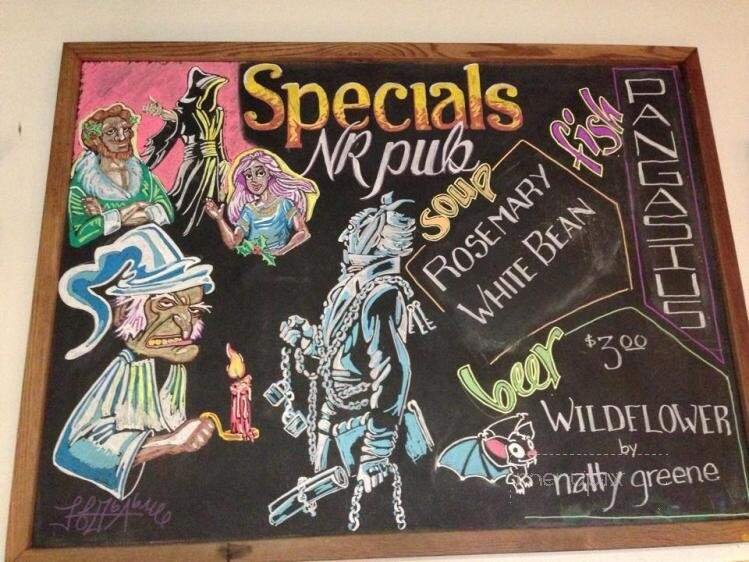 Specials
NR pub
soup
ROSEMARY
WHITE BEAN
fish
PANGASIUS
beer
$3.00
WILDFLOWER
by
natty greene